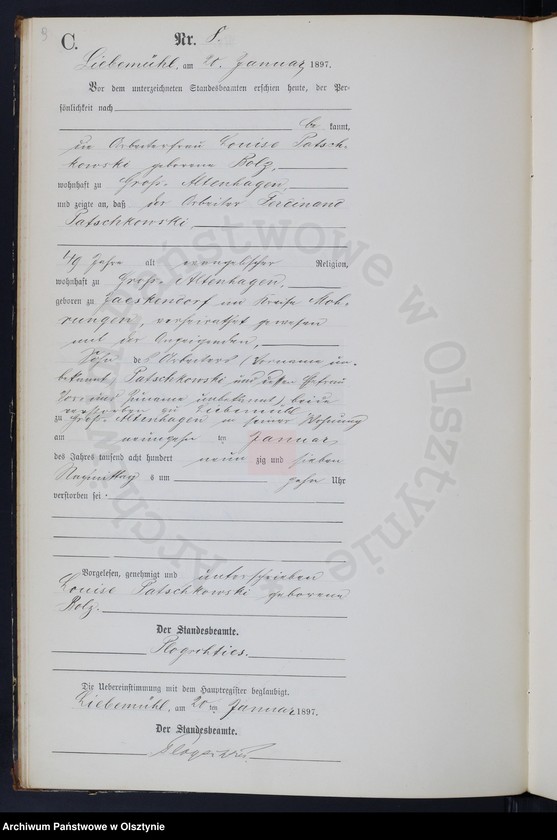 C. Nr. 8.
Liebemühl, am 20. Januar 1897.
Vor dem unterzeichneten Standesbeamten erschien heute, der Per-
sönlichkeit nach
be kannt,
die Arbeiterfrau Louise Patsch-
kowski geborene Bolz,
wohnhaft zu Groß-Altenhagen,
und zeigte an, daß der Arbeiter Ferdinand
Patschkowski
49 Jahre alt evangelischer Religion,
wohnhaft zu Groß-Altenhagen,
geboren zu Jaeskendorf im Kreise Moh-
rungen, verheirathet gewesen
mit der Anzeigenden,
Sohn des Arbeiters (Vorname un-
bekannt) Patschkowski und dessen Ehefrau
Vor und Zuname unbekannt, beide
verstorben zu Liebemühl
zu Groß-Altenhagen in seiner Wohnung
am neunzehn ten Januar
des Jahres tausend acht hundert neun zig und sieben
Nachmittags um zehn Uhr
verstorben sei
Vorgelesen, genehmigt und unterschrieben
Louise Patschkowski geborene
Bolz.
Der Standesbeamte.
Die Uebereinstimmung mit dem Hauptregister beglaubigt.
Liebemühl, am 20 ten Januar 1897.
Der Standesbeamte.
Archiwum Państwowe w Olsztynie
Archiwum Państwowe w Olsztynie